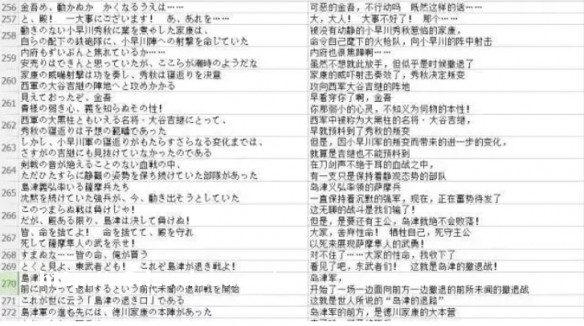 256 金吾め、動かぬか かくなるうえは… 可恶的金吾，不行动吗 既然这样的话…
257 と、殿！ 一大事にございます！ あ、あれを… 大，大人！ 大事不好了！ 那个…
動きのない小早川秀秋に業を煮やした家康は、 被没有动静的小早川秀秋惹恼的家康，
258 自らの配下の鉄砲隊に、小早川陣への射撃を命じていた 命令自己麾下的火枪队，向小早川的阵中射击
内府もずいぶんと焦れているか… 内府也很焦躁啊…
259 安売りはできんと思っていたが、ここらが潮時のようだな 虽然不想就此放手，但似乎是时候撤退了
家康の威嚇射撃は功を奏し、秀秋は寝返りを決意 家康的威吓射击奏效了，秀秋决定叛变
260 西軍の大谷吉継の陣地へと攻めかかる 攻向西军大谷吉继的阵地
見えておったぞ、金吾 早看穿你了啊，金吾
261 貴様の弱き心、義を知らぬその性！ 你那弱小的心灵，不知义为何物的本性！
西軍の大黒柱ともいえる名将・大谷吉継にとって、 西军中被称为大黑柱的名将・大谷吉继，
262 秀秋の寝返りは予想の範疇であった 早就预料到了秀秋的叛变
しかし、小早川軍の寝返りがもたらすさらなる変化までは、 但是，因小早川军的叛变而带来的进一步的变化，
263 さすがの吉継にも見抜けていなかったのである 就算是吉继也不能预料到
剣戟の音が絶えることのない血戦の中、 在刀剑声不绝于耳的血战之中，
264 ただひたすらに静観の姿勢を保ち続けていた部隊があった 有一支只是保持着静观态势的部队
島津義弘率いる薩摩兵たち 岛津义弘率领的萨摩兵
265 沈黙を続けていた強兵が、今、動き出そうとしていた 一直保持着沉默的强军，现在，正在蓄势待发了
このつまらぬ戦は負けじゃ！ 这无聊的战斗是我们输了！
266 だが、殿ある限り、島津は決して負けぬ！ 但是，是要还有主公，岛津就绝不会败落！
皆、命を捨てよ！ 命を捨てて、殿を守れ 大家，舍弃性命！ 牺牲自己，死守主公
267 死して薩摩隼人の武を示せ！ 以死来展现萨摩隼人的武勇！
268 すまぬな…皆の命、俺が貰う 对不住了…大家的性命，我收下了
269 とくと見よ、東武者ども！ これぞ島津が退き戦よ！ 看见了吧，东武者们！ 这就是岛津的撤退战！
島津 岛津军，
270 前に向かって退却するという前代未聞の退却戦を開始 开始了一场一边面向前方一边撤退的前所未闻的撤退战
271 これが世に云う「島津の退き口」である 这就是世人所说的“岛津的退路”
272 島津軍の進む先には、徳川家康の本陣があった 岛津军的前方，是德川家康的大本营